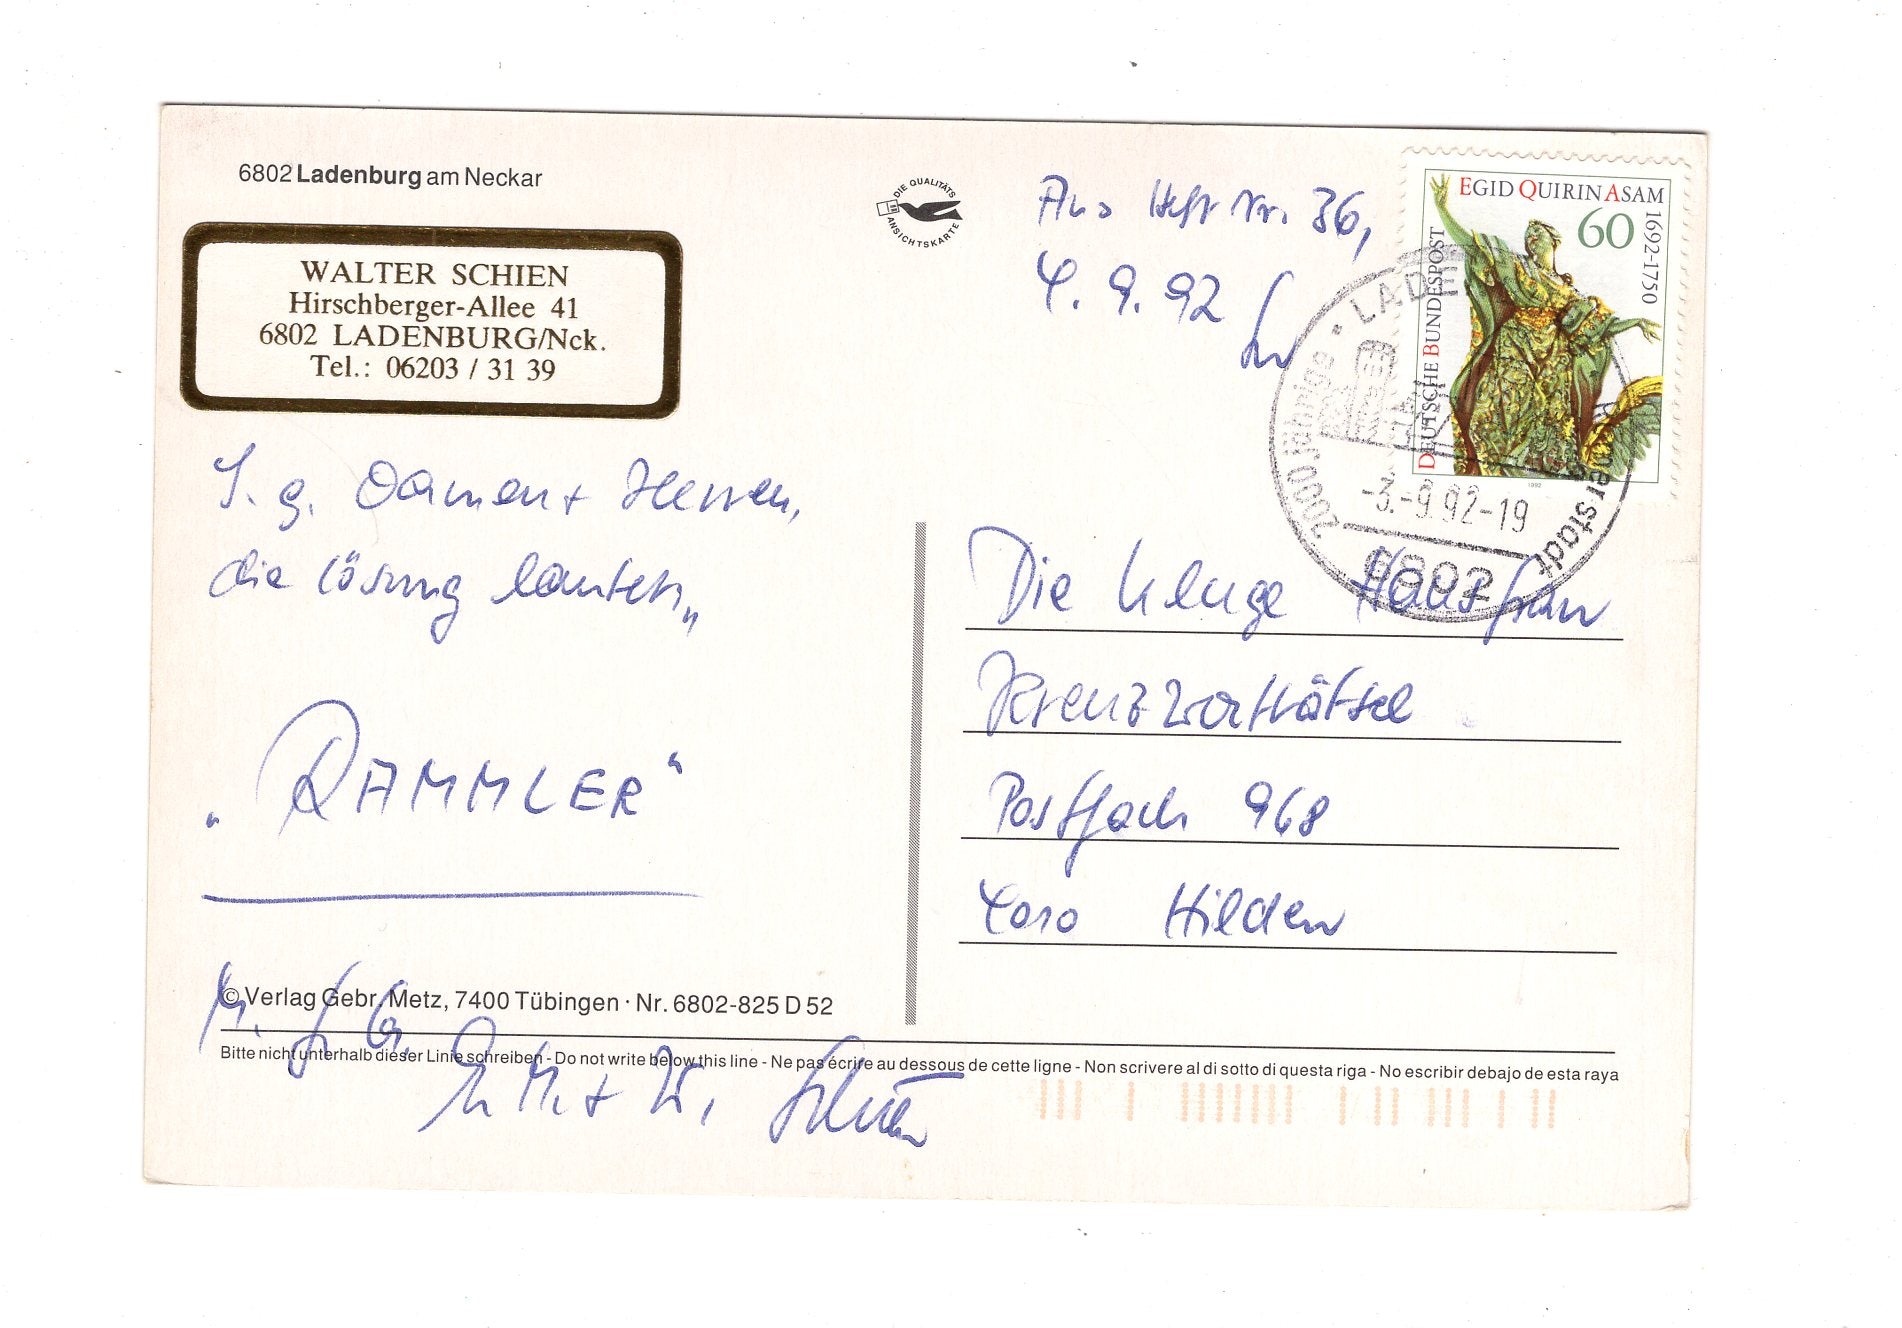 6802 Ladenburg am Neckar
WALTER SCHIEN
Hirschberger-Allee 41
6802 LADENBURG/Nck.
Tel.: 06203 / 31 39
DIE QUALITÄTS
ANSICHTSKARTE
Aus Heft Nr. 36,
4. 9. 92
EGID QUIRIN ASAM
1692-1750
60
DEUTSCHE BUNDESPOST
1992
LADE
2000jährige
erstadt
-3.-9.92-19
6802
S. g. Damen + Herren,
die Lösung lautet:„
„RAMMLER"
Die kluge Hausfrau
Kreuzworträtsel
Postfach 968
4010 Hilden
© Verlag Gebr. Metz, 7400 Tübingen · Nr. 6802-825 D 52
Bitte nicht unterhalb dieser Linie schreiben - Do not write below this line - Ne pas écrire au dessous de cette ligne - Non scrivere al di sotto di questa riga - No escribir debajo de esta raya
M. f. G.
+ W. Schien